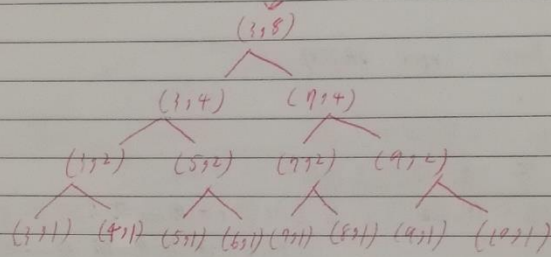 (3,8)
(3,4) (7,4)
(3,2) (5,2) (7,2) (9,2)
(3,1) (4,1) (5,1) (6,1) (7,1) (8,1) (9,1) (10,1)